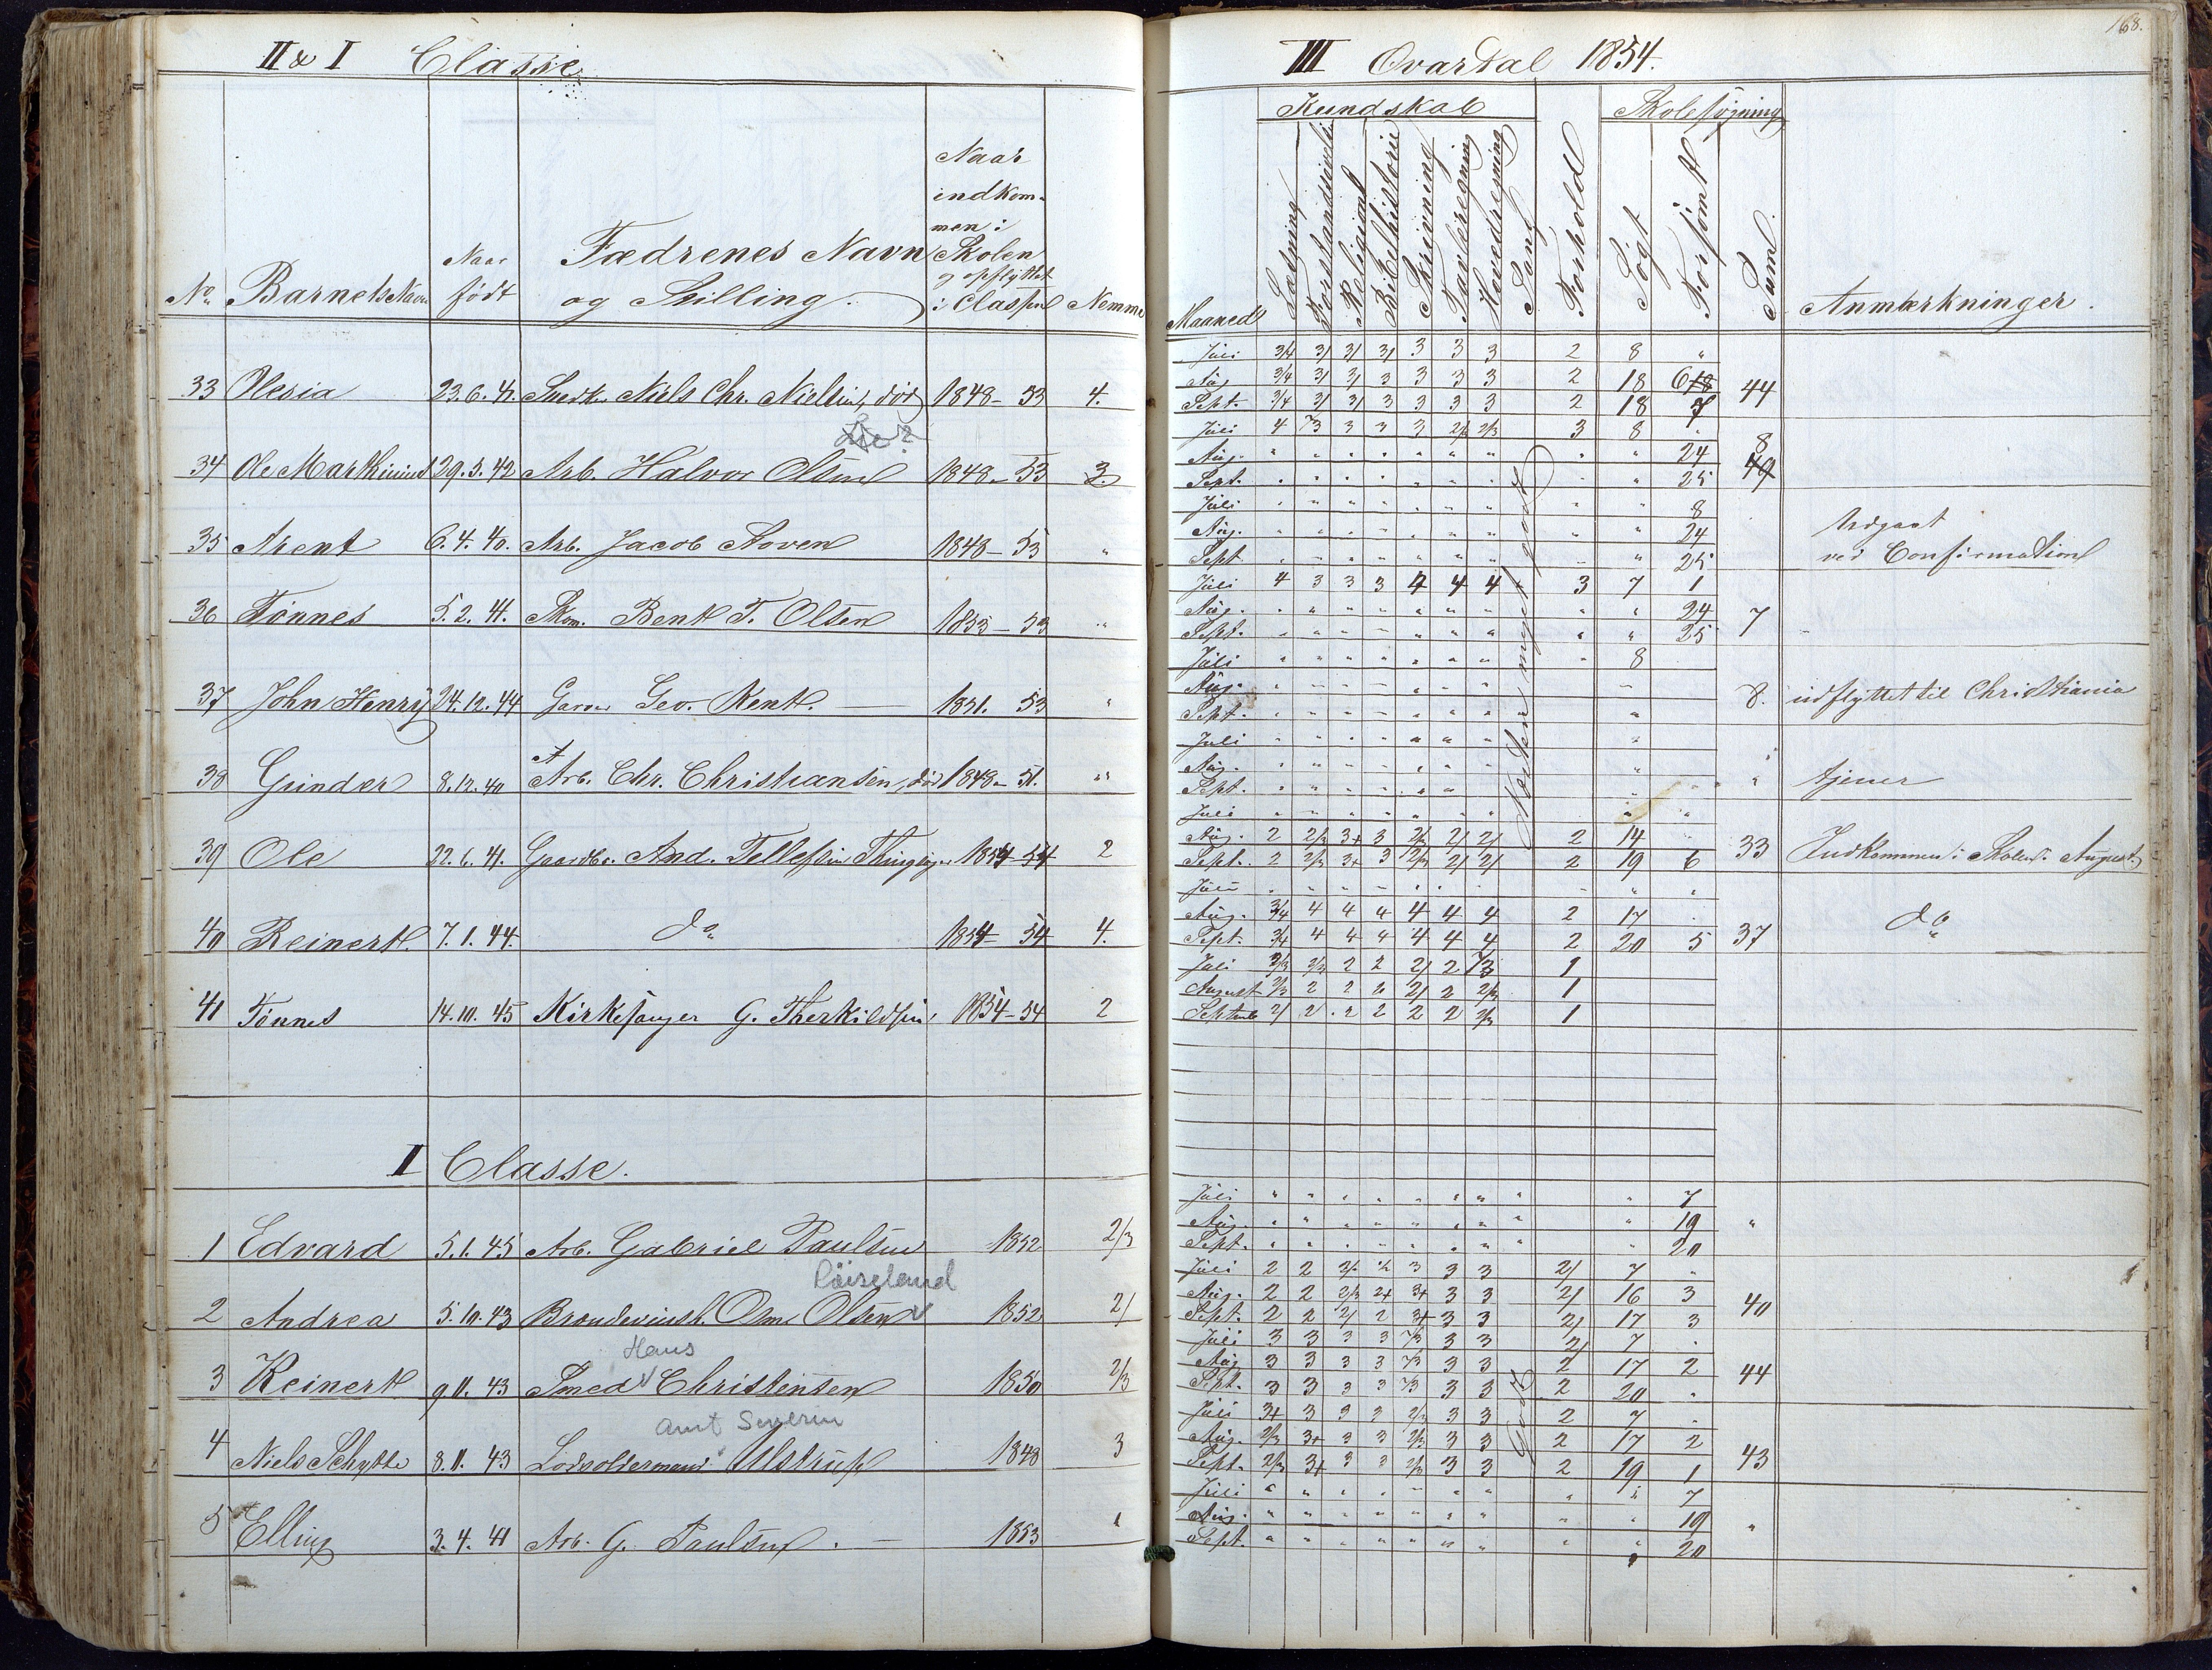 II & I Classe
No. Barnets Navn Naar født Fædrenes Navn og Stilling. Naar indkommen i Skolen og opflyttet i Classen Nemme
33 Olesia 23.6.41. Snedk. Niels Chr. Nielsen, død 1848-53 4.
34 Ole Marthinius 29.3.42 Arb. Halvor Olsen 1848-53 3.
35 Arent 6.4.40. Arb. Jacob Aoven 1848-53 "
36 Tönnes 5.2.41. Skom. Bent T. Olsen 1853-53 "
37 John Henry 24.12.44 Garver Geo. Kent. 1851. 53 "
38 Gunder 8.12.40 Arb. Chr. Christiansen, død 1848-51. "
39 Ole 22.6.41. Gaardbr. And. Tellefsen 1854-54 2
40 Reinert. 7.1.44. do 1854-54 4.
41 Tönnes 14.10.45 Kirkesanger G. Therkildsen 1854-54 2
I Classe.
1 Edvard 5.1.45 Arb. Gabriel Paulsen 1852 2/3
Röiseland
2 Andrea 5.10.43 Brændevinsh. Osm. Olsen 1852 2/
Hans
3 Reinert 9.11.43 Smed Christensen 1850 2/3
Amt Severin
4 Niels Schytte 8.11.43 Lodsoldermand Ulstrup 1848 3
5 Elling 3.4.41 Arb. G. Paulsen. 1853 "
168.
III Qvartal 1854.
Kundskab Skolesøgning
Maaned Læsning Forstandsøvelse Religion Bibelhistorie Skrivning Tavleregning Hovedregning Sang Forhold Søgt Forsømt Sum. Anmærkninger.
Juli 3/4 3/ 3/ 3/ 3 3 3 2 8 "
Aug. 3/4 3/ 3/ 3 3 3 3 2 18 6 44
Sept. 3/4 3/ 3/ 3 3 3 3 2 18 7
Juli 4 3 3 3 3 2/3 2/3 3 8 "
Aug. " " " " " " " " " 24 8
Sept. " " " " " " " " " 25 49
Juli " " " " " " " " " 8
Aug. " " " " " " " " " 24 Udgaat
Sept " " " " " " " " " 25 ved Confirmation
Juli 4 3 3 3 4 4 4 3 7 1
Aug. " " " " " " " " " 24 7
Sept. " " " " " " " " " 25
Juli " " " " " " " " 8
Aug. " " " " " " " " 8. udflyttet til Christiania
Sept. " " " " " " " "
Juli " " " " " " " "
Aug. " " " " " " " " " tjener
Sept. " " " " " " "
Juli " " " " " " " " "
Aug. 2 2/3 3+ 3 2/3 2/ 2/ 2 14 " 33 Indkommen i Skolen i August
Sept. 2 2/3 3+ 3 2/3 2/ 2/ 2 19 6
Juli " " " " " " " " "
Aug. 3/4 4 4 4 4 4 4 2 17 . 37 do
Sept. 3/4 4 4 4 4 4 4 2 20 5
Juli 2/3 2/3 2 2 2/ 2 2/3 1
August 2/3 2 2 2 2/ 2 2/3 1
Septemb 2/ 2 2 2 2 2 2/3 1
Noksaa meget godt
Juli " " " " " " " " " 7
Aug. " " " " " " " " " 19 "
Sept. " " " " " " " " " 20
Juli 2 2 2/3 2 3 3 3 2/ 7 "
Aug. 2 2 2/3 2+ 3+ 3 3 2/ 16 3 40
Sept. 2 2 2/ 2 3+ 3 3 2/ 17 3
Juli 3 3 3 3 /3 3 3 2/ 7 .
Aug 3 3 3 3 /3 3 3 2 17 2 44
Sept. 3 3 3 3 /3 3 3 2 20 .
Juli 3+ 3 3 3 2/3 3 3 2 7 .
Aug. 2/3 3+ 3 3 2/3 3 3 2 17 2 43
Sept. 2/3 3+ 3 3 2/3 3 3 2 19 1
Juli " " " " " " " " " 7
Aug. " " " " " " " " " 19 "
Sept. " " " " " " " " " 20
Godt